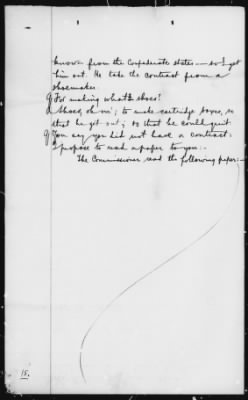 known from the Confederate states — so I got
him out. He take the contract from a
shoemaker.
Q For making what? shoes?
A Shoes, oh no; to make cartridge boxes, so
that he get out; so that he could quit
Q You say you did not have a contract:
I propose to read a paper to you:-
The Commissioner read the following paper:-
15.